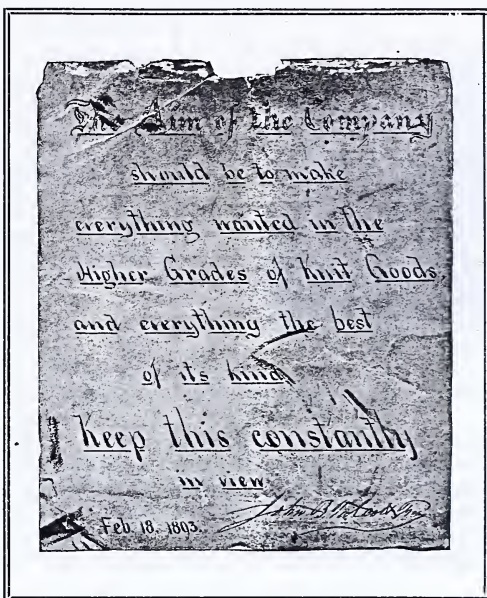 The Aim of the Company
should be to make
everything wanted in the
Higher Grades of Knit Goods,
and everything the best
of its kind
Keep this constantly
in view
Feb. 18. 1893.
John